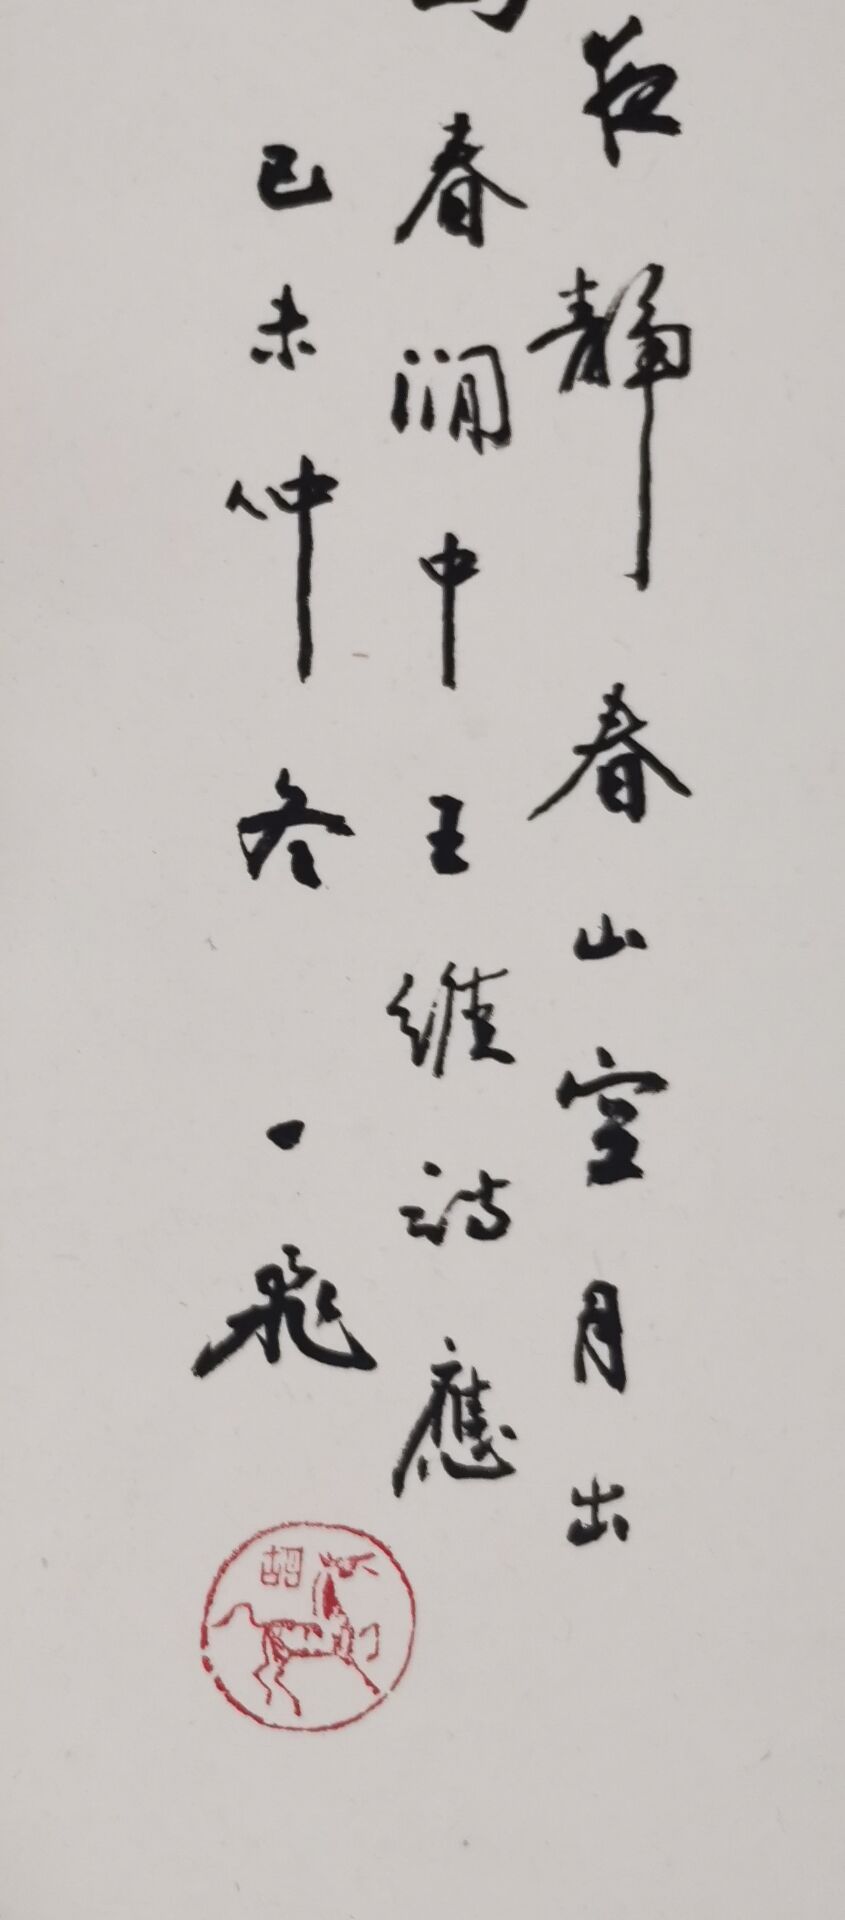 夜静春山空月出
春涧中王维诗應
己未仲冬一飛
胡